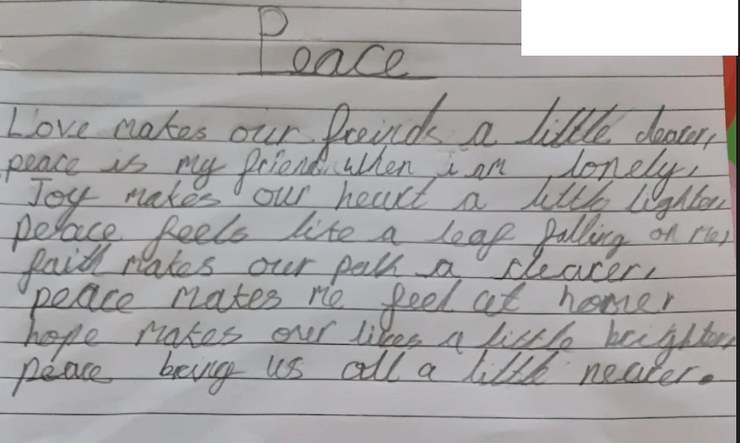 Peace
Love makes our freinds a little dearer,
peace is my friend when i am lonely,
Joy makes our heart a little lighter,
peace feels like a leaf falling on me,
faith makes our path a clearer,
peace makes me feel at home,
hope makes our lives a little brighter,
peace bring us all a little nearer.